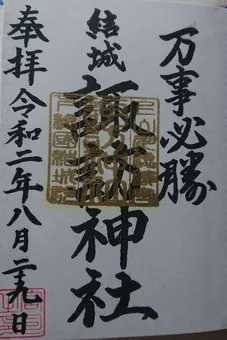 万事必勝
結城
諏訪神社
奉拝令和二年八月二九日